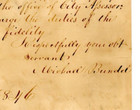 the office of City Assessor
arge the duties of the
fidelity
Respectfully your obt
Servant
Michael Rundel
1846